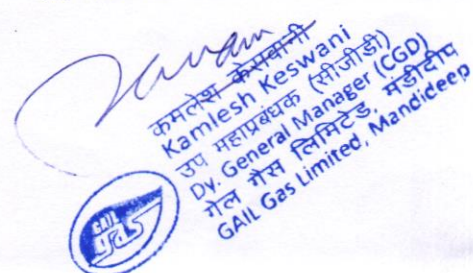 कमलेश केसवानी
Kamlesh Keswani
उप महाप्रबंधक (सीजीडी)
Dy. General Manager (CGD)
गेल गैस लिमिटेड, मंडीदीप
GAIL Gas Limited, Mandideep
GAIL
gas